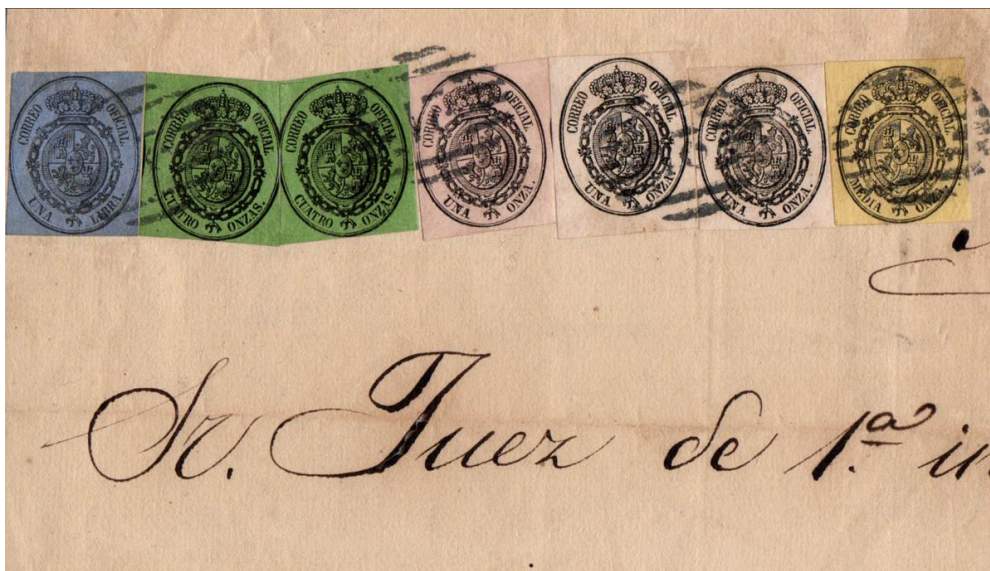 CORREO OFICIAL. UNA LIBRA.
CORREO OFICIAL. CUATRO ONZAS.
CORREO OFICIAL. CUATRO ONZAS.
CORREO OFICIAL. UNA ONZA.
CORREO OFICIAL. UNA ONZA.
CORREO OFICIAL. UNA ONZA.
CORREO OFICIAL. MEDIA ONZA.
Sr. Juez de 1.ª in